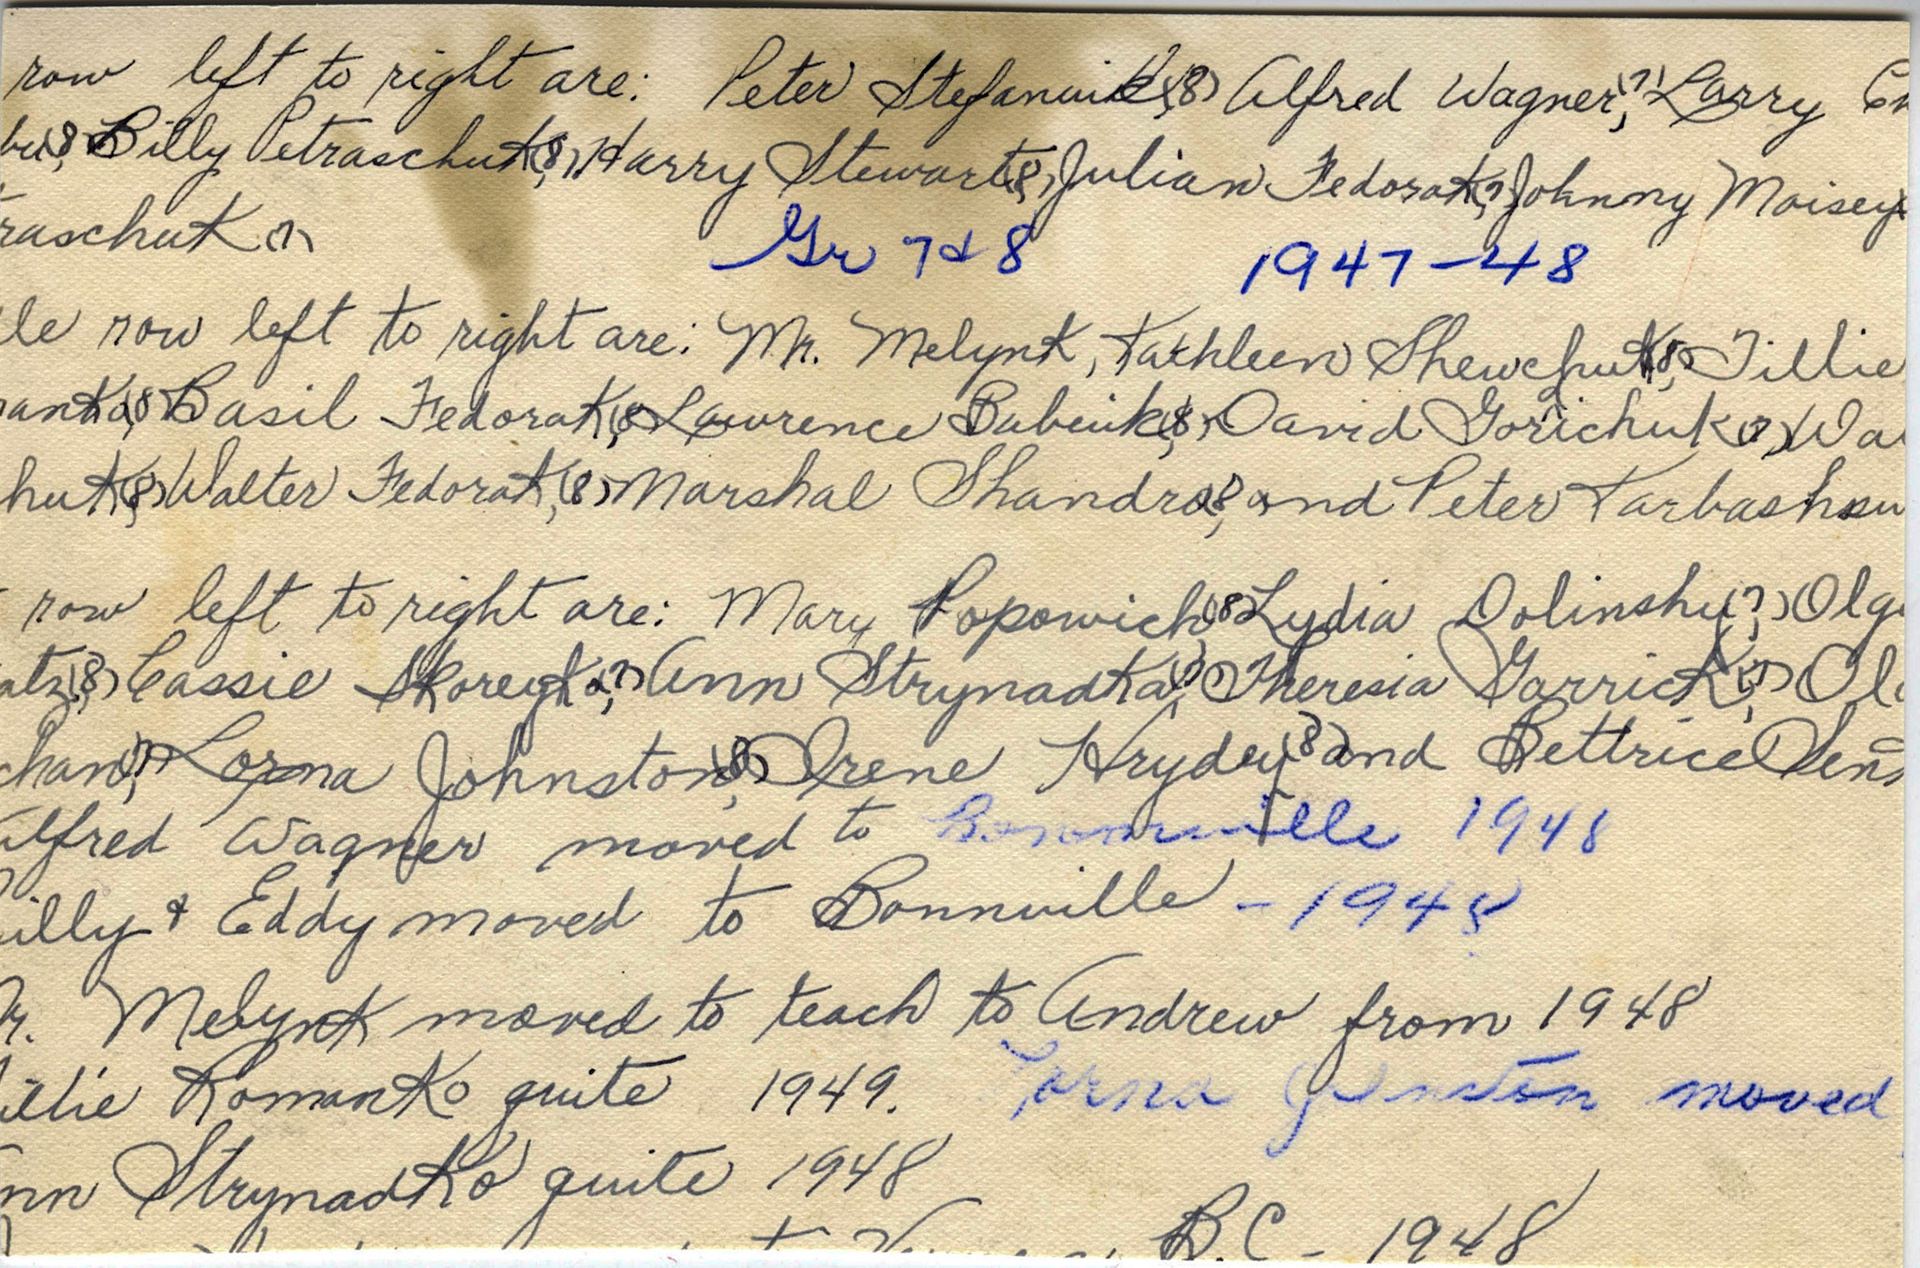 row left to right are: Peter Stefaniuk(8), Alfred Wagner(7), Larry
(8), Billy Petraschuk(8), Harry Stewart(8), Julian Fedorak(7), Johnny Moisey
raschuk (7)
Gr 7 & 8 1947-48
le row left to right are: Mr. Melynk, Kathleen Shewchuk(8), Tillie
manko(8), Basil Fedorak(8), Lawrence Babiuk(8), David Gorichuk(7), Wal
huk(8), Walter Fedorak,(8) Marshal Shandro(8), and Peter Karbashew
row left to right are: Mary Popowich(8), Lydia Dolinshy(7), Olga
atz(8), Cassie Skoreyko(7), Ann Strynadka(7), Theresia Garrick(7), Ol
chan(7), Lorna Johnston(8), Irene Hrydey(8) and Bettrice Sens
Alfred Wagner moved to Bonnville 1948
Billy & Eddy moved to Bonnville - 1948
Mr. Melynk moved to teach to Andrew from 1948
illie Romanko quite 1949. Lorna Jonston moved
nn Strynadko quite 1948
to B.C - 1948